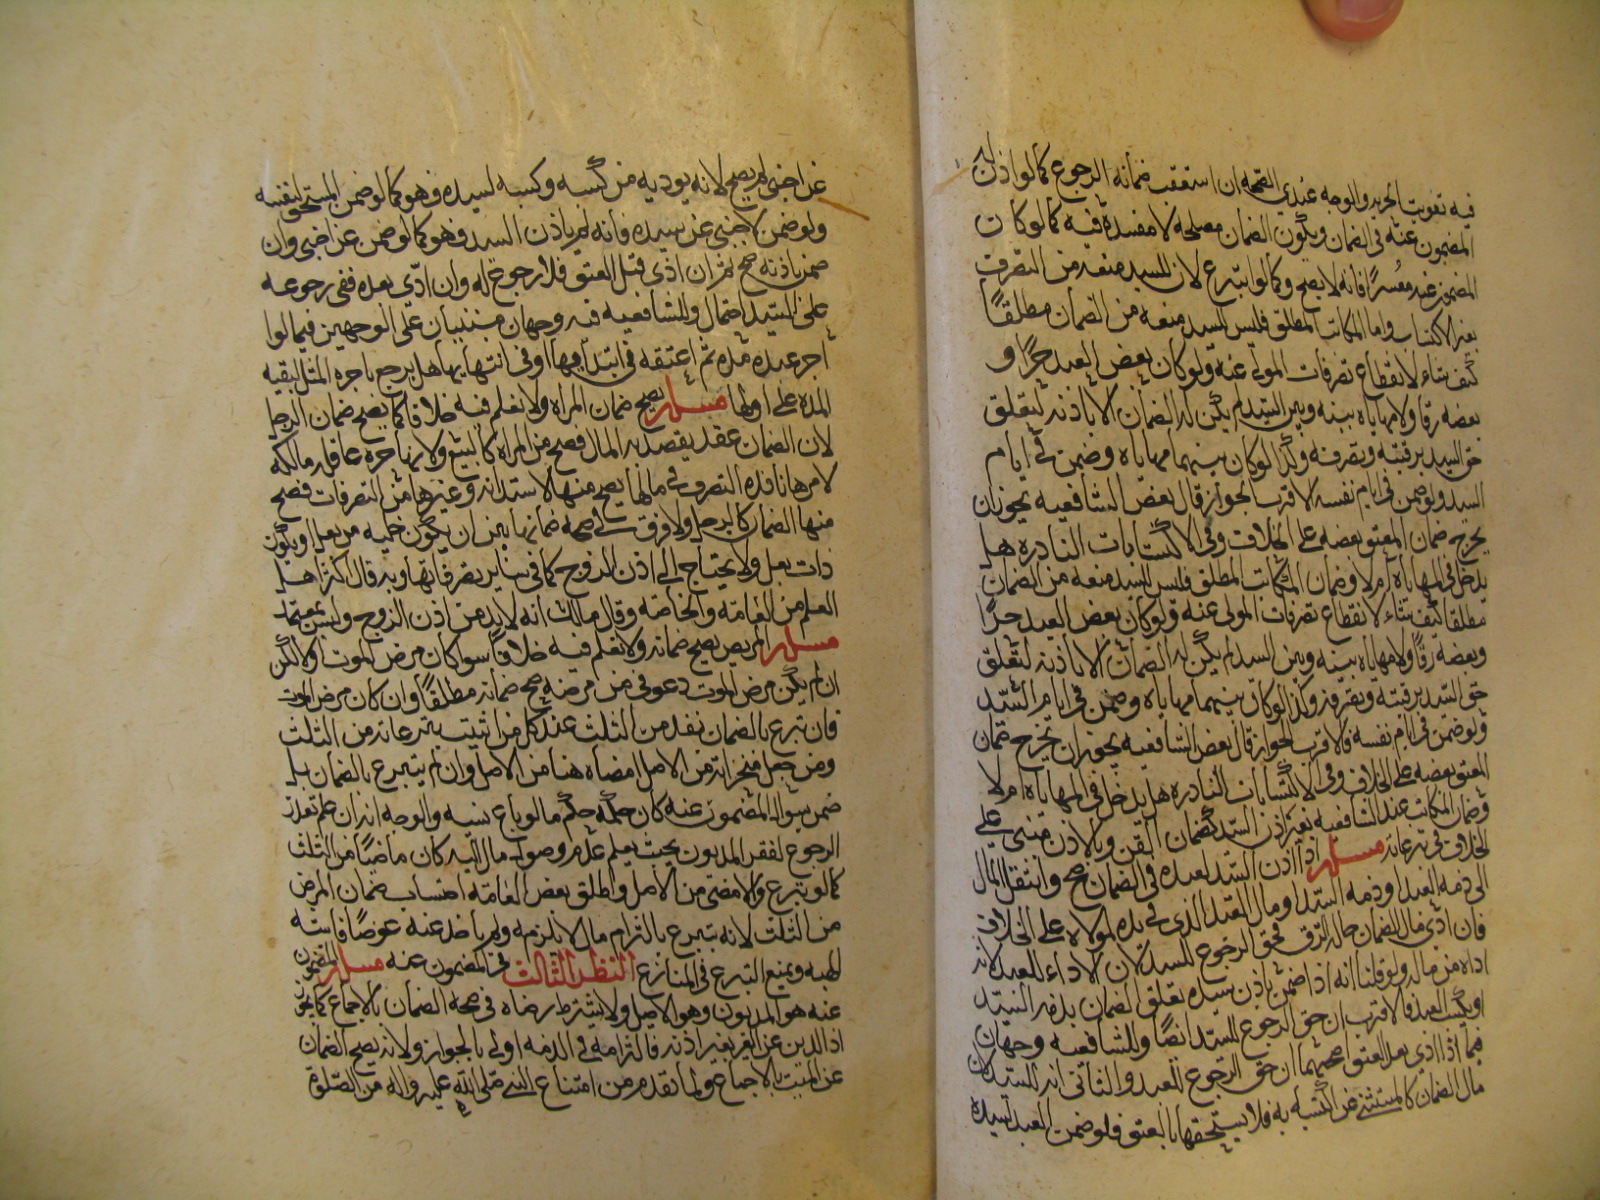 فيه تفويت الحرية والوجه عندي الصحة ان استعقب ضمانه الرجوع كما لو اذن له
المضمون عنه في الضمان ويكون الضمان مصلحة لا مفسدة فيه كما لو كان
المضمون عنه معسرا فانه لا يصح وكما لو تبرع لان للسيد منعه من التصرف
بغير الاكتساب واما المكاتب المطلق فليس للسيد منعه من الضمان مطلقا
كيف شاء لانقطاع تصرفات المولى عنه ولو كان بعض العبد حرا و
بعضه رقا ولا مهاياة بينه وبين السيد لم يكن له الضمان الا باذنه لتعلق
حق السيد برقبته وتصرفه وكذا لو كان بينهما مهاياة وضمن في ايام
السيد ولو ضمن في ايام نفسه فالاقرب الجواز قال بعض الشافعية يجوز ان
يخرج ضمان المعتق بعضه على الخلاف وفي الاكتسابات النادرة هل
يدخل في المهاياة ام لا وضمان المكاتب المطلق فليس للسيد منعه من الضمان
مطلقا كيف شاء لانقطاع تصرفات المولى عنه ولو كان بعض العبد حرا
وبعضه رقا ولا مهاياة بينه وبين السيد لم يكن له الضمان الا باذنه لتعلق
حق السيد برقبته وتصرفه وكذا لو كان بينهما مهاياة وضمن في ايام السيد
ولو ضمن في ايام نفسه فالاقرب الجواز قال بعض الشافعية يجوز ان يخرج ضمان
المعتق بعضه على الخلاف وفي الاكتسابات النادرة هل يدخل في المهاياة ام لا
وضمان المكاتب عند الشافعية بغير اذن السيد كضمان القن وبالاذن مبني على
الخلاف في تبرعاته مسئلة اذا اذن السيد لعبده في الضمان صح وانتقل المال
الى ذمة العبد او ذمة السيد او مال العبد الذي في يده لمولاه على الخلاف
فان ادى مال الضمان حالة الرق فحق الرجوع للسيد لان الاداء للعبد لانه
اداه من ماله ولو قلنا انه اذا ضمن باذن سيده تعلق الضمان بذمة السيد
او بكسب العبد فالاقرب ان حق الرجوع للسيد ايضا وللشافعية وجهان
فيما اذا ادى بعد العتق اصحهما ان حق الرجوع للعبد والثاني انه للسيد لان
مال الضمان كالمستثنى عن اكتسابه فلا يستحقها بالعتق فلو ضمن العبد لسيده
عن اجنبي لم يصح لانه يوديه من كسبه وكسبه لسيده فهو كما لو ضمن المستحق لنفسه
ولو ضمن لاجنبي عن سيده فانه لم ياذن السيد فهو كما لو ضمن عن اجنبي وان
ضمن باذنه صح ثم ان ادى قبل العتق فلا رجوع له وان ادى بعده ففي رجوعه
على السيد احتمال وللشافعية فيه وجهان مبنيان على الوجهين فيما لو ا
اجر عبده مدة ثم اعتقه في ابتدائها او في انتهايها هل يرجع باجرة المثل لبقية
المدة على اولها مسئلة يصح ضمان المراة ولا نعلم فيه خلافا كما يصح ضمان الرجل
لان الضمان عقد يقصد به المال فصح من المراة كالبيع ولانها حرة عاقلة مالكة
لامرها نافذة التصرف في مالها يصح منها الاستدانة وغيرها من التصرفات فصح
منها الضمان كالرجل ولا فرق في صحة ضمانها بين ان يكون خلية من بعل او يكون
ذات بعل ولا يحتاج الى اذن الزوج كما في ساير تصرفاتها وبه قال اكثر اهل
العلم من العامة والخاصة وقال مالك انه لابد من اذن الزوج وليس بمعتمد
مسئلة المريض يصح ضمانه ولا نعلم فيه خلافا سوا كان مرض الموت او لا لكن
ان لم يكن مرض الموت وعوفي من مرضه صح ضمانه مطلقا وان كان مرض الموت
فان تبرع بالضمان نفذ من الثلث عند كل من اثبت تبرعاته من الثلث
ومن جعل منجزاته من الاصل امضاه هنا من الاصل وان لم يتبرع بالضمان بل
ضمن بسوال المضمون عنه كان حكمه حكم ما لو باع نسية والوجه انه ان علم تعذر
الرجوع لفقر المديون بحيث يعلم عدم وصول مال اليه كان ماضيا من الثلث
كما لو تبرع والا مضى من الاصل واطلق بعض العامة احتساب ضمان المرض
من الثلث لانه تبرع بالتزام مال لا يلزمه ولم ياخذ عنه عوضا فاشبه
الهبة ونمنع التبرع في المتنازع النظر الثالث في المضمون عنه مسئلة المضمون
عنه هو المديون وهو الاصيل ولا يشترط رضاه في صحة الضمان بالاجماع كما يجوز
اداء الدين عن الغير بغير اذنه فالتزامه في الذمة اولى بالجواز ولانه يصح الضمان
عن الميت بالاجماع ولما تقدم من امتناع النبي صلى الله عليه واله من الصلوة